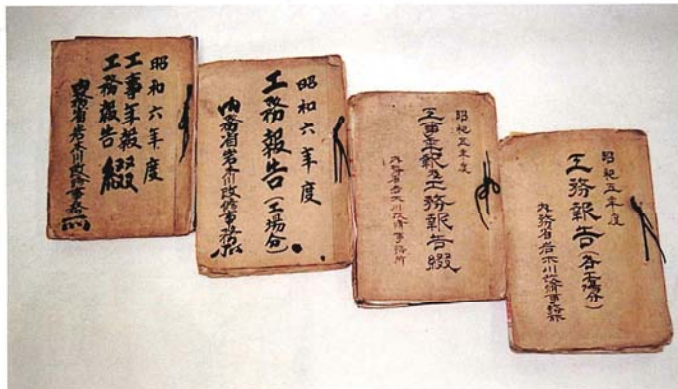 昭和六年度
工事年報
工務報告 綴
内務省岩木川改修事務所
昭和六年度
工務報告(工場分)
内務省岩木川改修事務所
昭和五年度
工事年報及工務報告綴
内務省岩木川改修事務所
昭和五年度
工務報告(各工場分)
内務省岩木川改修事務所